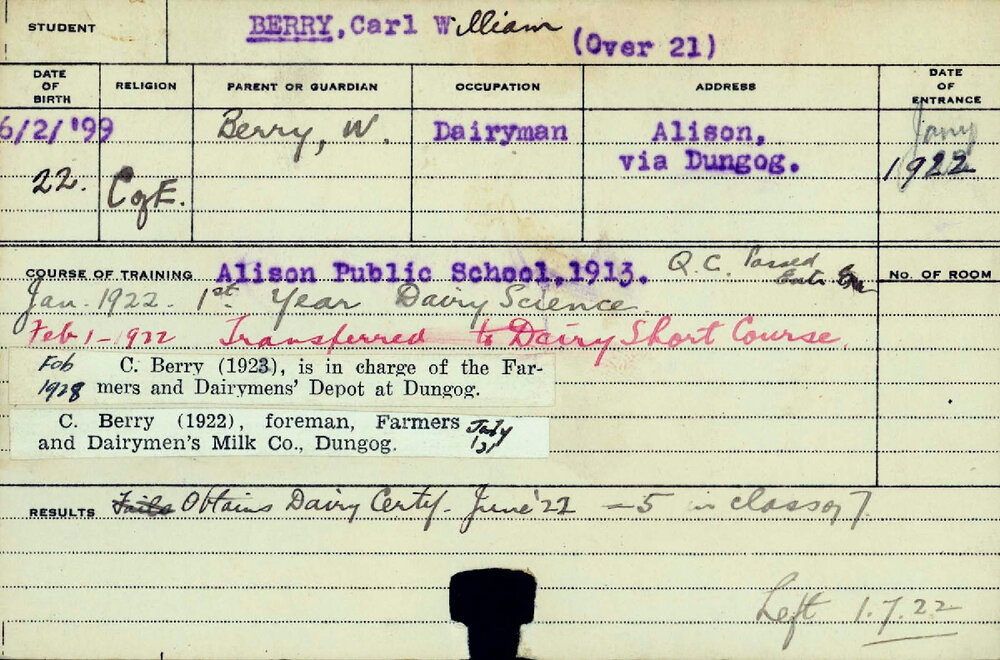 STUDENT BERRY, Carl William (Over 21)
DATE OF BIRTH RELIGION PARENT OR GUARDIAN OCCUPATION ADDRESS DATE OF ENTRANCE
6/2/'99 Berry, W. Dairyman Alison, Jany
via Dungog. 1922
22. C of E.
COURSE OF TRAINING Alison Public School, 1913. Q.C. Passed No. OF ROOM
Jan. 1922. 1st Year Dairy Science.
Feb 1-1922 Transferred to Dairy Short Course.
Feb C. Berry (1923), is in charge of the Far-
1928 mers and Dairymens' Depot at Dungog.
C. Berry (1922), foreman, Farmers July
and Dairymen's Milk Co., Dungog. '31
RESULTS Fails Obtains Dairy Certf. June '22 - 5 in class of 7.
Left 1.7.22